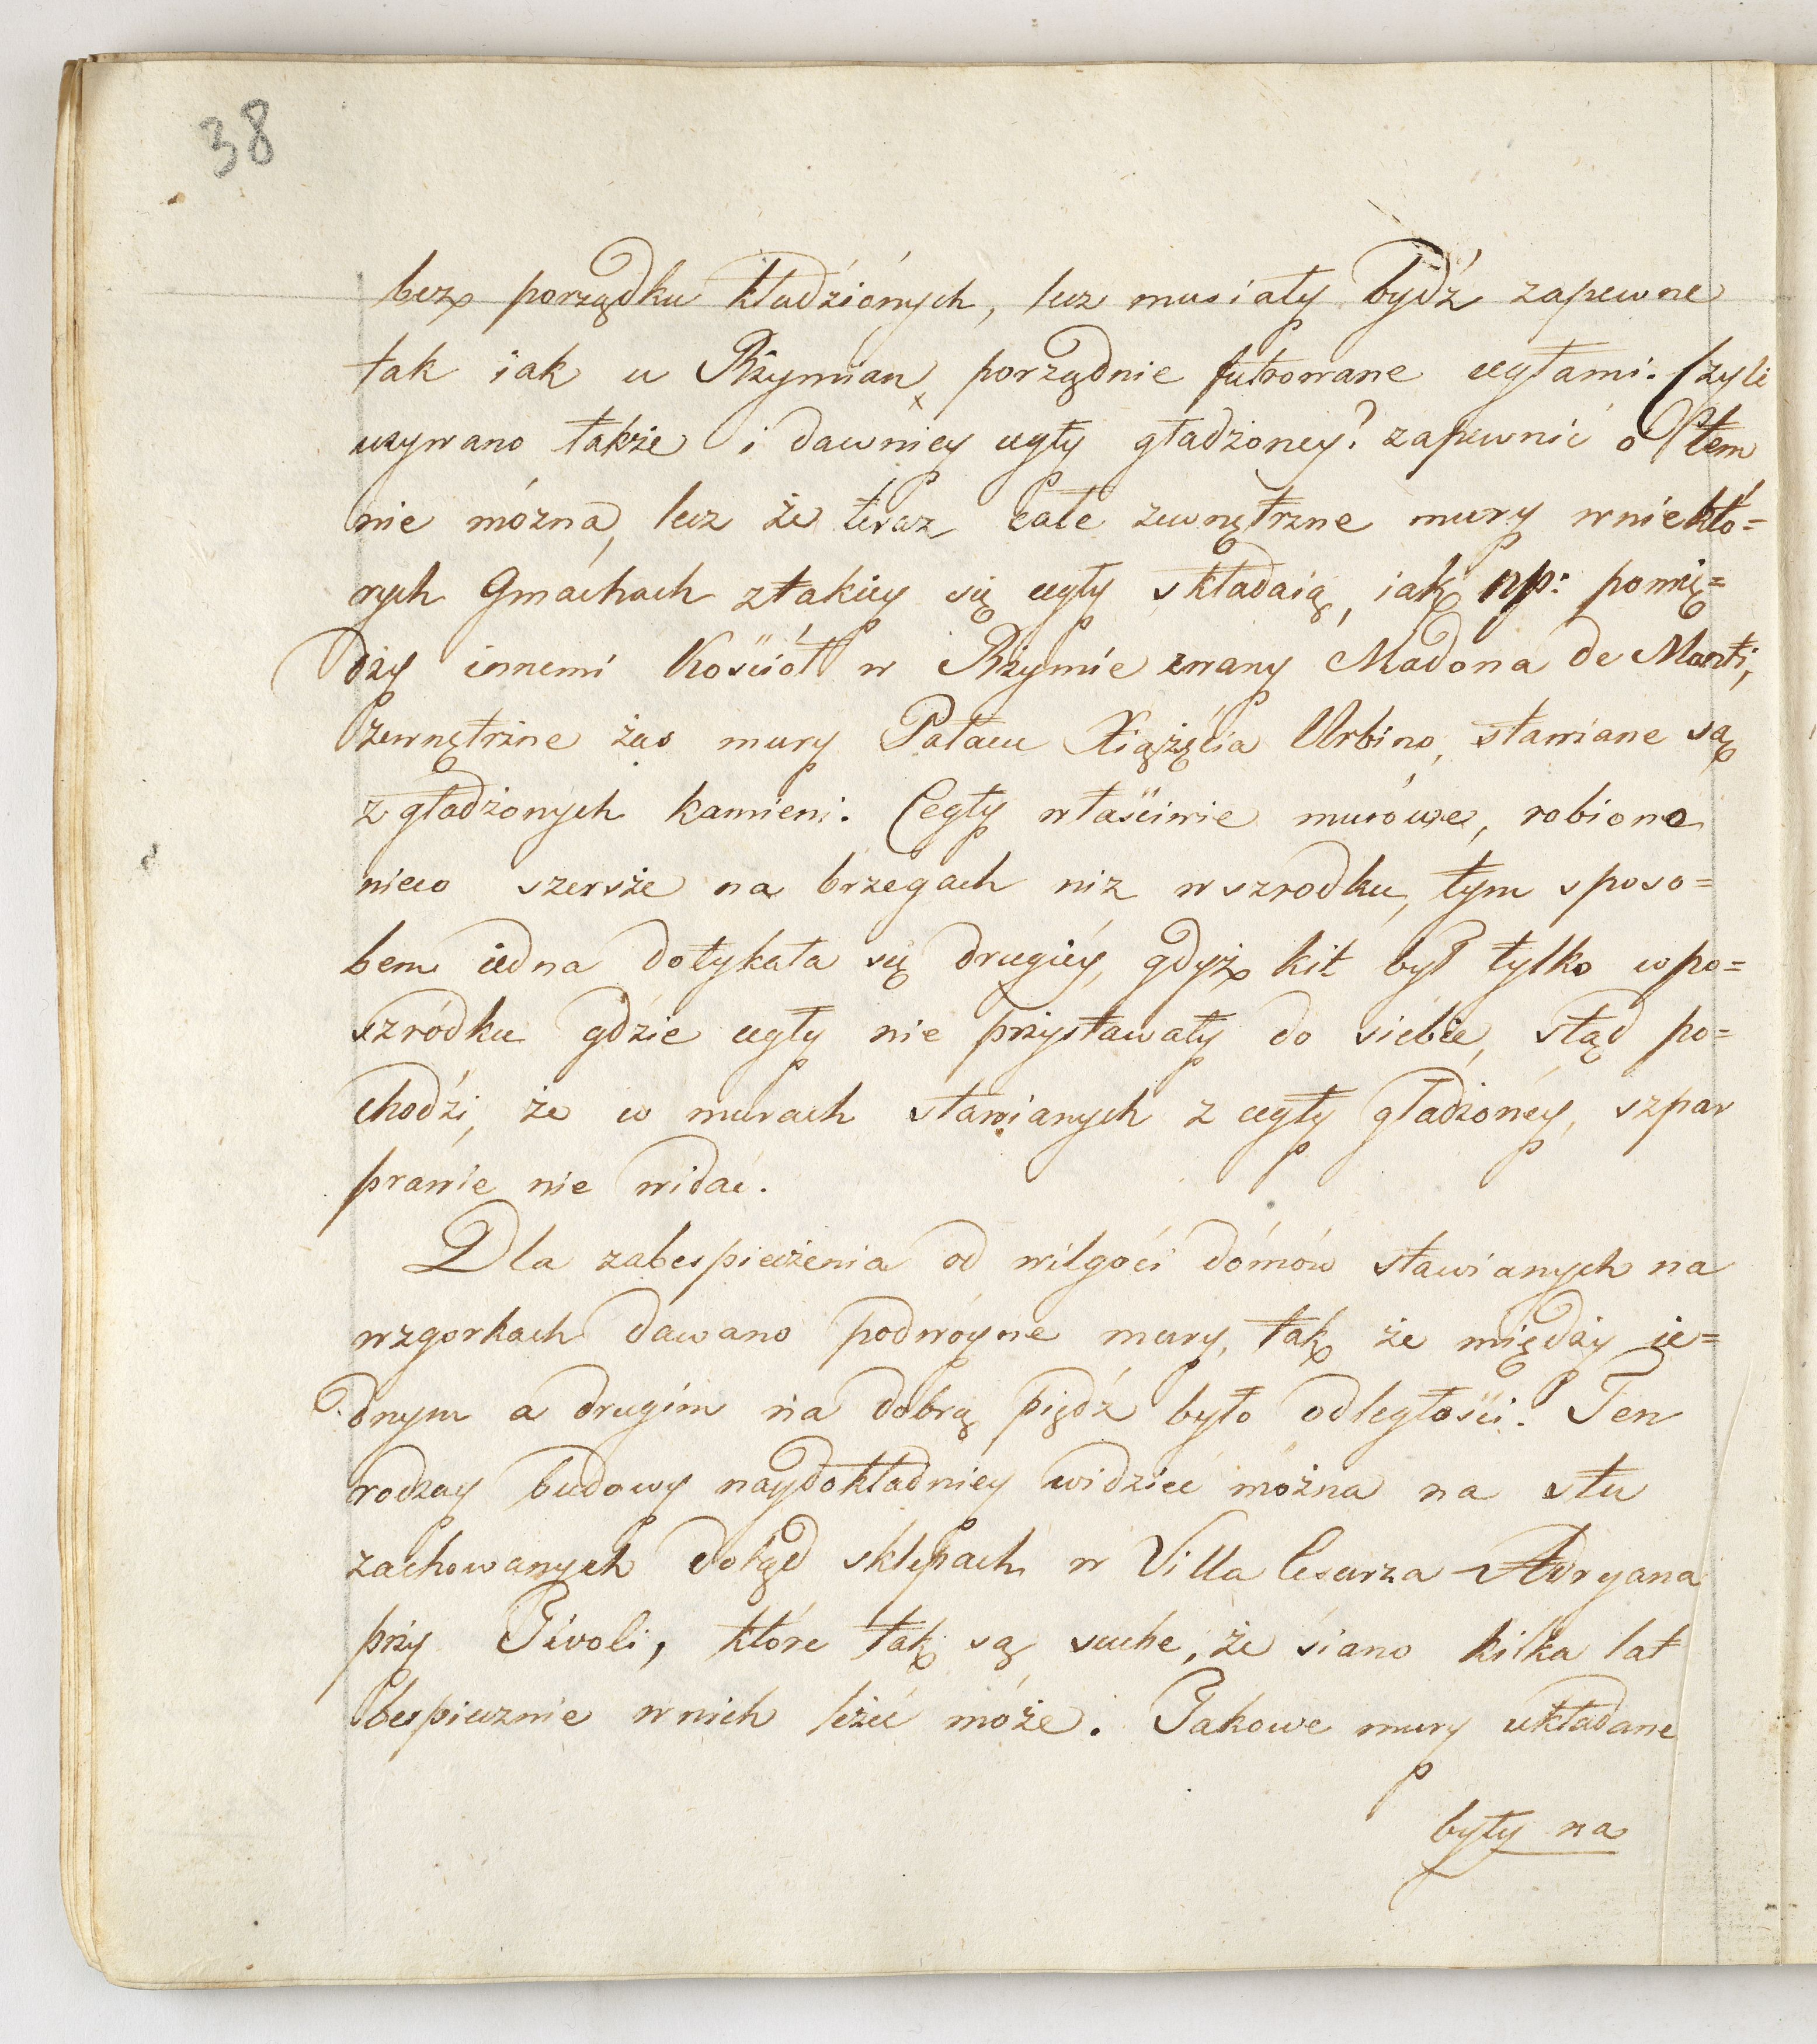 38
bez porządku kładziónych, lecz musiały bydź zapewne
tak iak u Rzymian, porządnie futrowane cegłami. Czyli
uzywano także i dawniey cegły gładzoney? zapewnić o tem
nie mózna, lecz że teraz całe zewnętrzne mury w niektó=
rych Gmachach z takiey się cegły składaią, iak np: pomię=
dzy innemi Kościół w Rzymie zwany Madona de Monti,
zewnętrzne zas mury Pałacu Xiążęcia Urbino, stawiane są
z gładzonych kamieni. Cegły właściwie murówe, robiono
nieco szersze na brzegach niz w szrodku, tym sposo=
bem iedna dotykała się drugiéy, gdyż kit był tylko w po=
szródku gdzie cegły nie przystawały do siebie, stąd po=
chodzi, że w murach stawianych z cegły gładzonéy, szpar
prawie nie widać.
Dla zabespieczenia od wilgoći dómów stawianych na
wzgorkach dawano podwóyne mury, tak że między ie=
dnym a drugim na dobrą piędź było odległości. Ten
rodzay budowy naydokładniey widzieć można na stu
zachowanych dotąd sklepach w Villa Cesarza Adryana
przy Tivoli, które tak są suche, że siano kilka lat
bespiecznie w nich leżeć móże. Takowe mury układane
były na